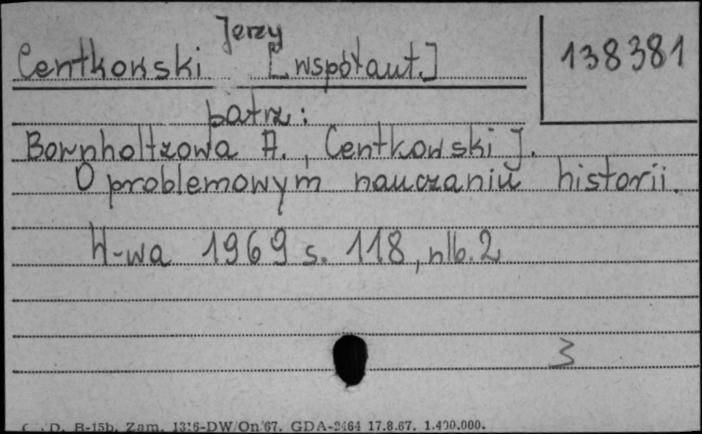 Centkowski Jerzy [współaut.]
138381
patrz:
Bornholtzowa A., Centkowski J.
O problemowym nauczaniu historii.
W-wa 1969 s. 118, nlb. 2
3
D. B-15b. Zam. 1316-DW/On/67. GDA-2464 17.8.67. 1.400.000.